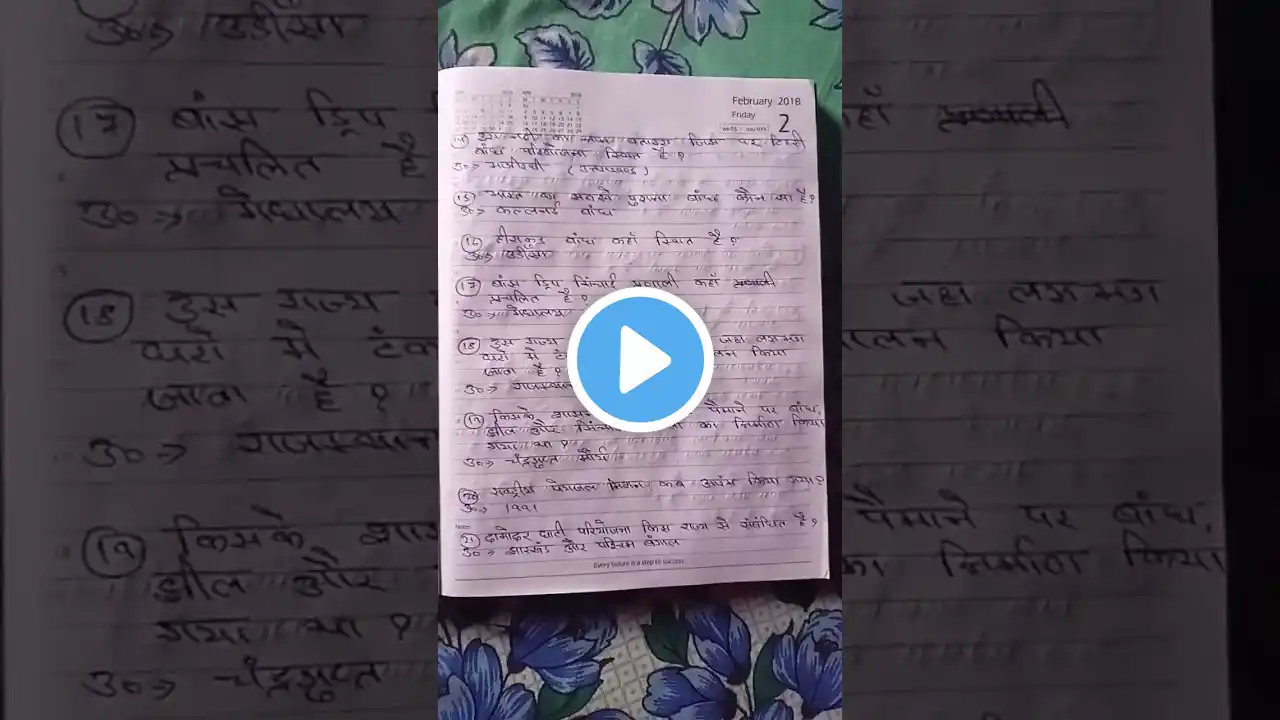 February 2018
Friday
2
(14) इस नदी का नाम बताइए जिस पर टिहरी
बांध परियोजना स्थित है ?
उ०→ भागीरथी (उत्तराखण्ड)
(15) भारत का सबसे पुराना बांध कौन सा है?
उ०→ कल्लनई बांध
(16) हीराकुड बांध कहाँ स्थित है ?
उ०→ उडीसा
(17) बांस ड्रिप सिंचाई प्रणाली कहाँ
प्रचलित है ?
उ०→ मेघालय
(18) इस राज्य जहा लगभग
घरों में टंक लन किया
जाता है ?
उ०→ राजस्थान
(19) किसके शासन पैमाने पर बांध,
झील और का निर्माण किया
गया था ?
उ०→ चंद्रगुप्त मौर्य
(20) राष्ट्रीय पेयजल मिशन कब आरंभ किया गया?
उ०→ 1991
Notes
(21) दामोदर घाटी परियोजना किस राज्य से संबंधित है ?
उ०→ झारखंड और पश्चिम बंगाल
Every failure is a step to success